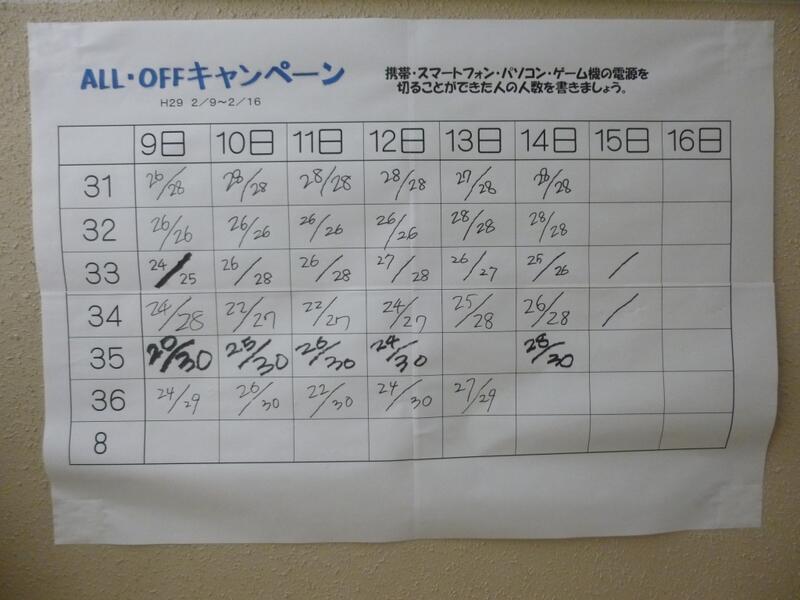 ALL・OFFキャンペーン
H29 2/9~2/16
携帯・スマートフォン・パソコン・ゲーム機の電源を
切ることができた人の人数を書きましょう。
9日 10日 11日 12日 13日 14日 15日 16日
31 26/28 28/28 28/28 28/28 27/28 28/28
32 26/26 26/26 26/26 26/26 28/28 28/28
33 24/25 26/28 26/28 27/28 26/27 25/26 /
34 24/28 22/27 22/27 24/27 25/28 26/28 /
35 20/30 25/30 26/30 24/30 28/30
36 24/29 26/30 22/30 24/30 27/29
8